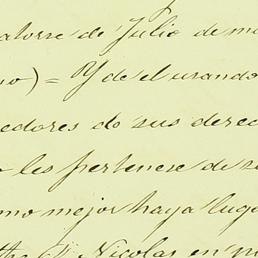 atorse de Julio de m
no) = Y de el usando
edores do sus derec
o les pertenese de
omo mejor haya luga
Nicolas en